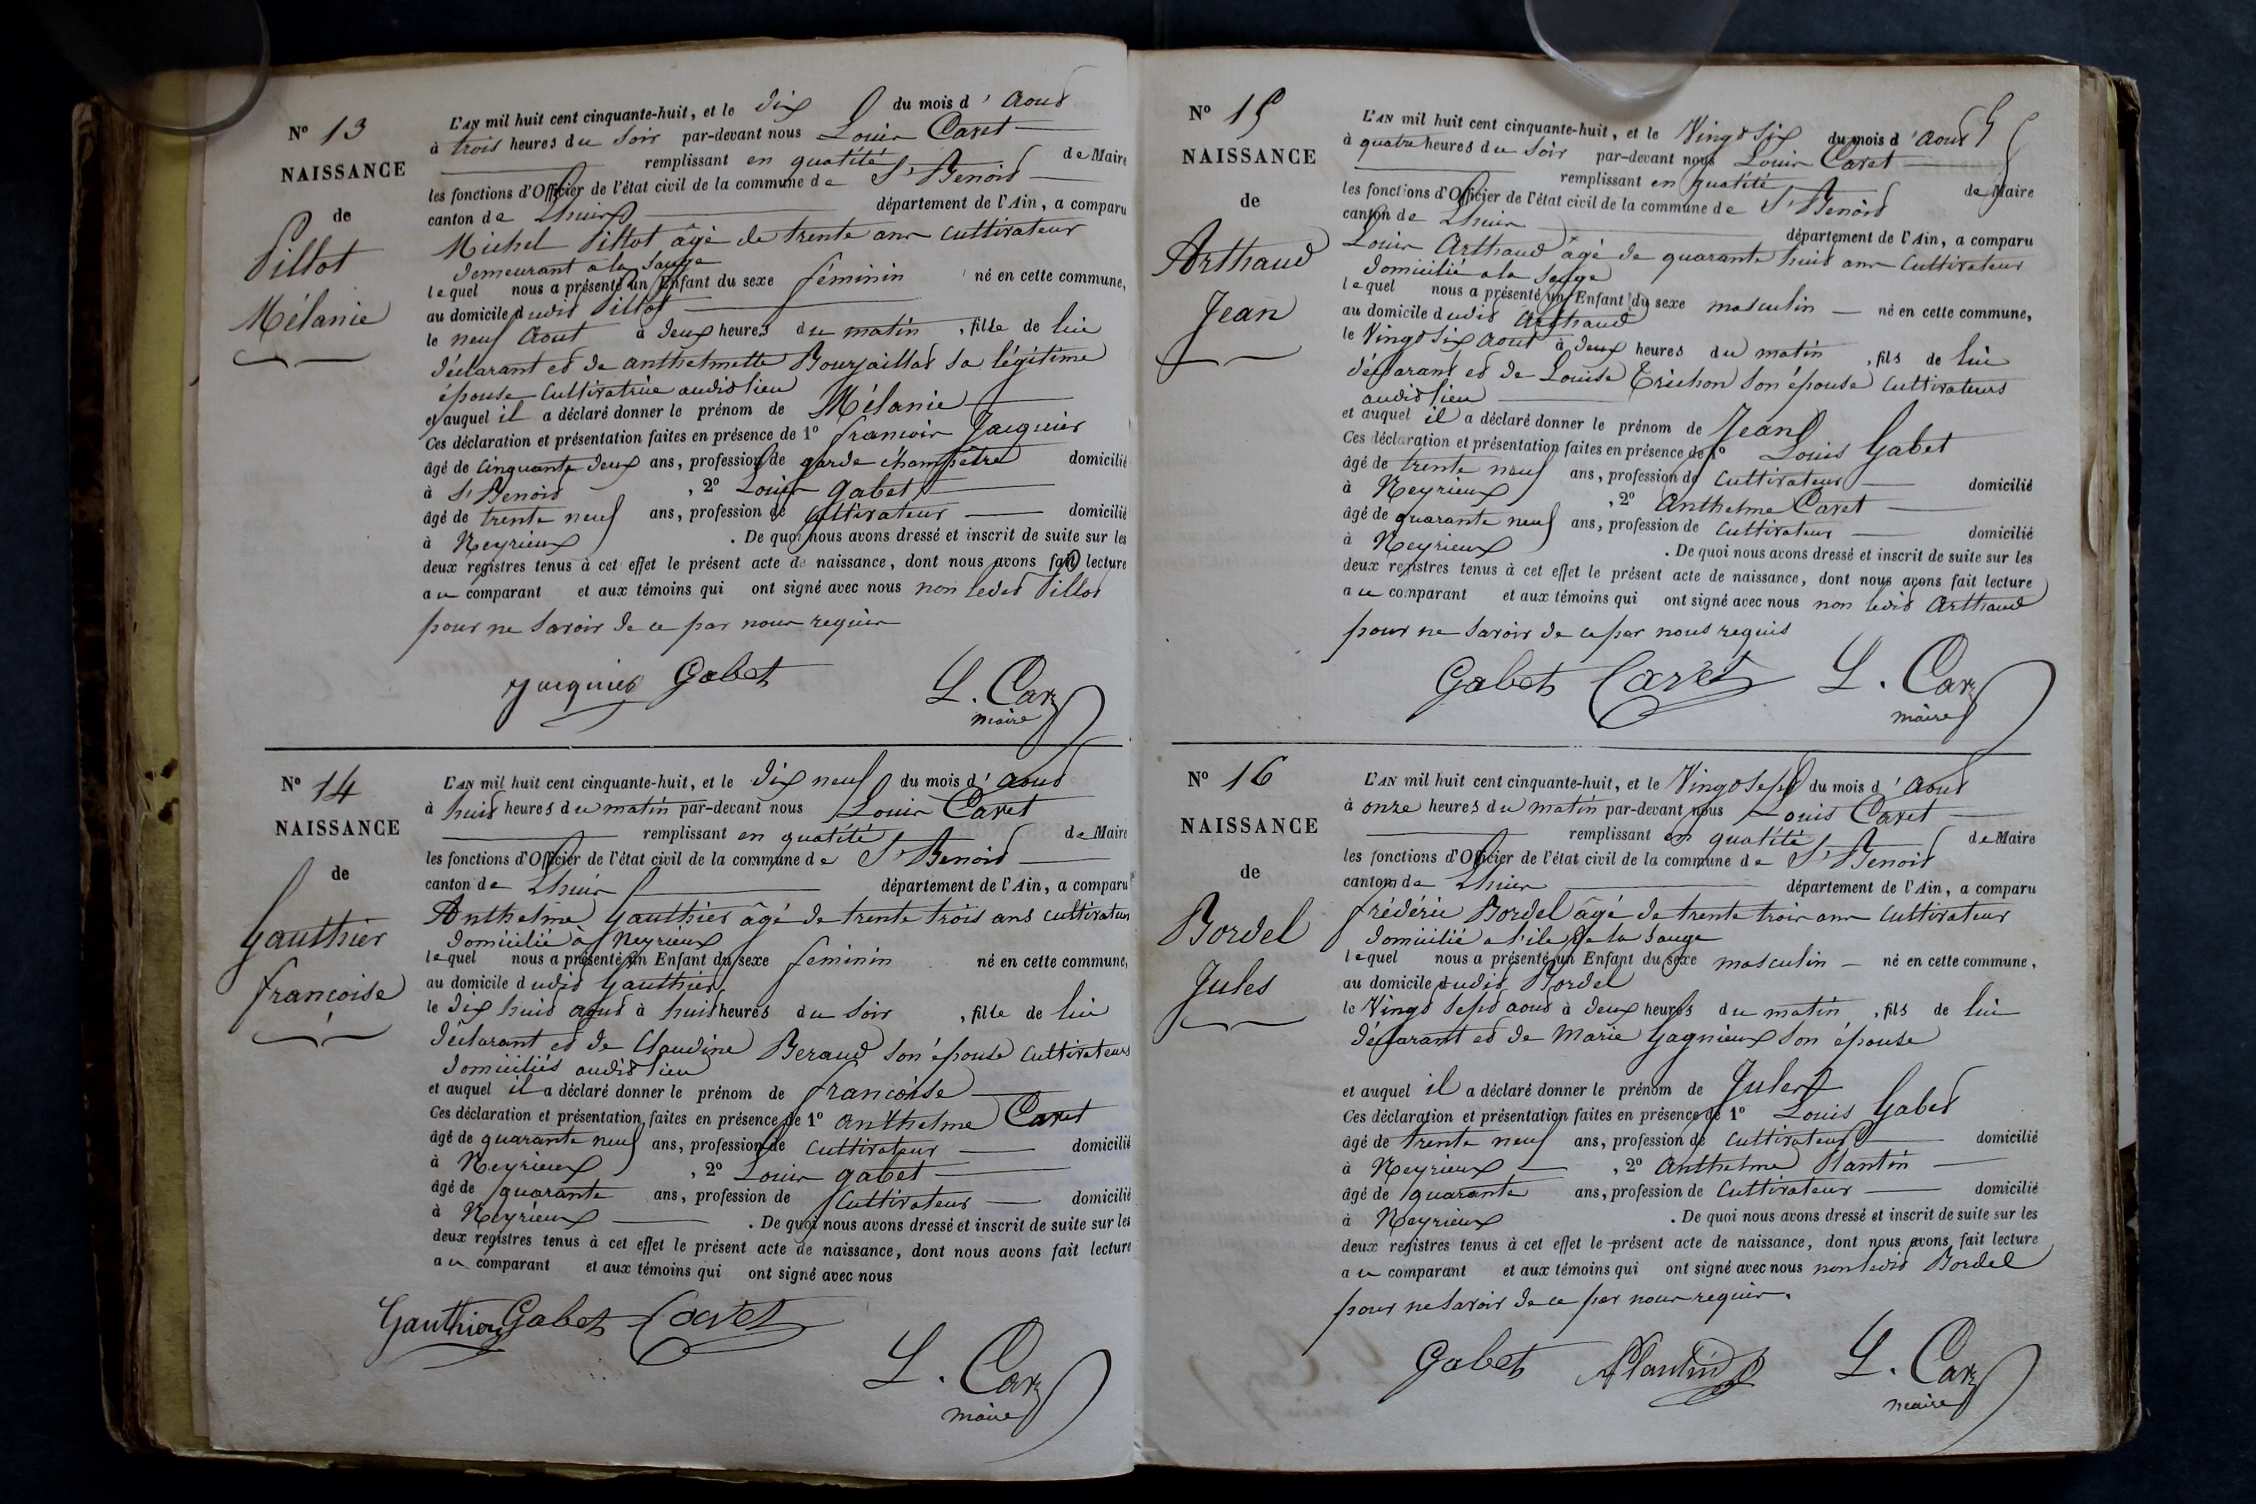 N° 13
NAISSANCE
de
Pittot
Mélanie
L'AN mil huit cent cinquante-huit, et le dix du mois d' Aout
à trois heures du soir par-devant nous Louis Carret
remplissant en qualité de Maire
les fonctions d'Officier de l'état civil de la commune de St Benoit
canton de Lhuis département de l'Ain, a comparu
Michel Pittot âgé de trente ans cultivateur
demeurant a la Sauge
lequel nous a présenté un Enfant du sexe féminin né en cette commune,
au domicile dudit Pittot
le neuf Aout à deux heures du matin, fille de lui
déclarant et de anthelmette Bourjaillat sa légitime
épouse cultivatrice audit lieu
et auquel il a déclaré donner le prénom de Mélanie
Ces déclaration et présentation faites en présence de 1° francois Jacquier
âgé de cinquante deux ans, profession de garde champêtre domicilié
à St Benoit, 2° Louis gabet
âgé de trente neuf ans, profession de cultivateur domicilié
à Neyrieux. De quoi nous avons dressé et inscrit de suite sur les
deux registres tenus à cet effet le présent acte de naissance, dont nous avons fait lecture
au comparant et aux témoins qui ont signé avec nous non ledit Pittot
pour ne savoir de ce par nous requis
Jacquier Gabet L. Car
maire
N° 14
NAISSANCE
de
Gauthier
francoise
L'AN mil huit cent cinquante-huit, et le dix neuf du mois d' aout
à huit heures du matin par-devant nous Louis Carret
remplissant en qualité de Maire
les fonctions d'Officier de l'état civil de la commune de St Benoit
canton de Lhuis département de l'Ain, a comparu
Anthelme Gauthier âgé de trente trois ans cultivateur
domicilié à Neyrieux
lequel nous a présenté un Enfant du sexe féminin né en cette commune,
au domicile dudit Gauthier
le dix huit aout à huit heures du soir, fille de lui
déclarant et de Claudine Beraud son épouse cultivateurs
domiciliés audit lieu
et auquel il a déclaré donner le prénom de francoise
Ces déclaration et présentation faites en présence de 1° anthelme Carret
âgé de quarante neuf ans, profession de cultivateur domicilié
à Neyrieux, 2° Louis gabet
âgé de quarante ans, profession de cultivateur domicilié
à Neyrieux. De quoi nous avons dressé et inscrit de suite sur les
deux registres tenus à cet effet le présent acte de naissance, dont nous avons fait lecture
au comparant et aux témoins qui ont signé avec nous
Gauthier Gabet Carret
L. Car
maire
N° 15
NAISSANCE
de
Arthaud
Jean
L'AN mil huit cent cinquante-huit, et le Vingt Six du mois d' aout
à quatre heures du soir par-devant nous Louis Carret
remplissant en qualité de Maire
les fonctions d'Officier de l'état civil de la commune de St Benoit
canton de Lhuis département de l'Ain, a comparu
Louis Arthaud âgé de quarante huit ans cultivateur
domicilié a la Sauge
lequel nous a présenté un Enfant du sexe masculin né en cette commune,
au domicile dudit Arthaud
le Vingt Six aout à deux heures du matin, fils de lui
déclarant et de Louise Trichon son épouse cultivateurs
audit lieu
et auquel il a déclaré donner le prénom de Jean
Ces déclaration et présentation faites en présence de 1° Louis Gabet
âgé de trente neuf ans, profession de cultivateur domicilié
à Neyrieux, 2° Anthelme Carret
âgé de quarante neuf ans, profession de cultivateur domicilié
à Neyrieux. De quoi nous avons dressé et inscrit de suite sur les
deux registres tenus à cet effet le présent acte de naissance, dont nous avons fait lecture
au comparant et aux témoins qui ont signé avec nous non ledit Arthaud
pour ne savoir de ce par nous requis
Gabet Carret L. Car
maire
N° 16
NAISSANCE
de
Bordel
Jules
L'AN mil huit cent cinquante-huit, et le Vingt Sept du mois d' Aout
à onze heures du matin par-devant nous Louis Carret
remplissant en qualité de Maire
les fonctions d'Officier de l'état civil de la commune de St Benoit
canton de Lhuis département de l'Ain, a comparu
frédéric Bordel âgé de trente trois ans cultivateur
domicilié a l'ile de la Sauge
lequel nous a présenté un Enfant du sexe masculin né en cette commune,
au domicile dudit Bordel
le Vingt Sept aout à deux heures du matin, fils de lui
déclarant et de Marie Gagnieux son épouse
et auquel il a déclaré donner le prénom de Jules
Ces déclaration et présentation faites en présence de 1° Louis Gabet
âgé de trente neuf ans, profession de cultivateur domicilié
à Neyrieux, 2° Anthelme Plantin
âgé de quarante ans, profession de cultivateur domicilié
à Neyrieux. De quoi nous avons dressé et inscrit de suite sur les
deux registres tenus à cet effet le présent acte de naissance, dont nous avons fait lecture
au comparant et aux témoins qui ont signé avec nous non ledit Bordel
pour ne savoir de ce par nous requis.
Gabet Plantin L. Car
maire